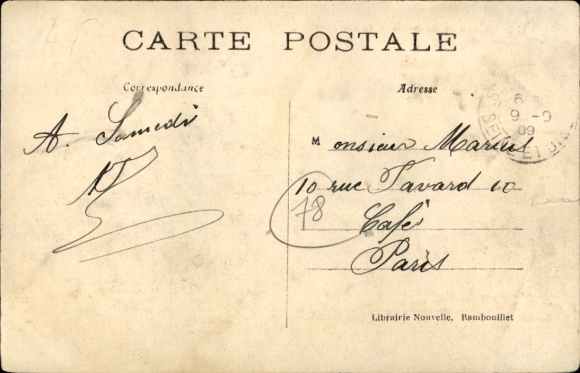 CARTE POSTALE
Correspondance
Adresse
A. Samedi
Monsieur Marius
10 rue Favard 10
78
Café
Paris
Librairie Nouvelle, Rambouillet
6
9 -9
09
SEINE ET OISE